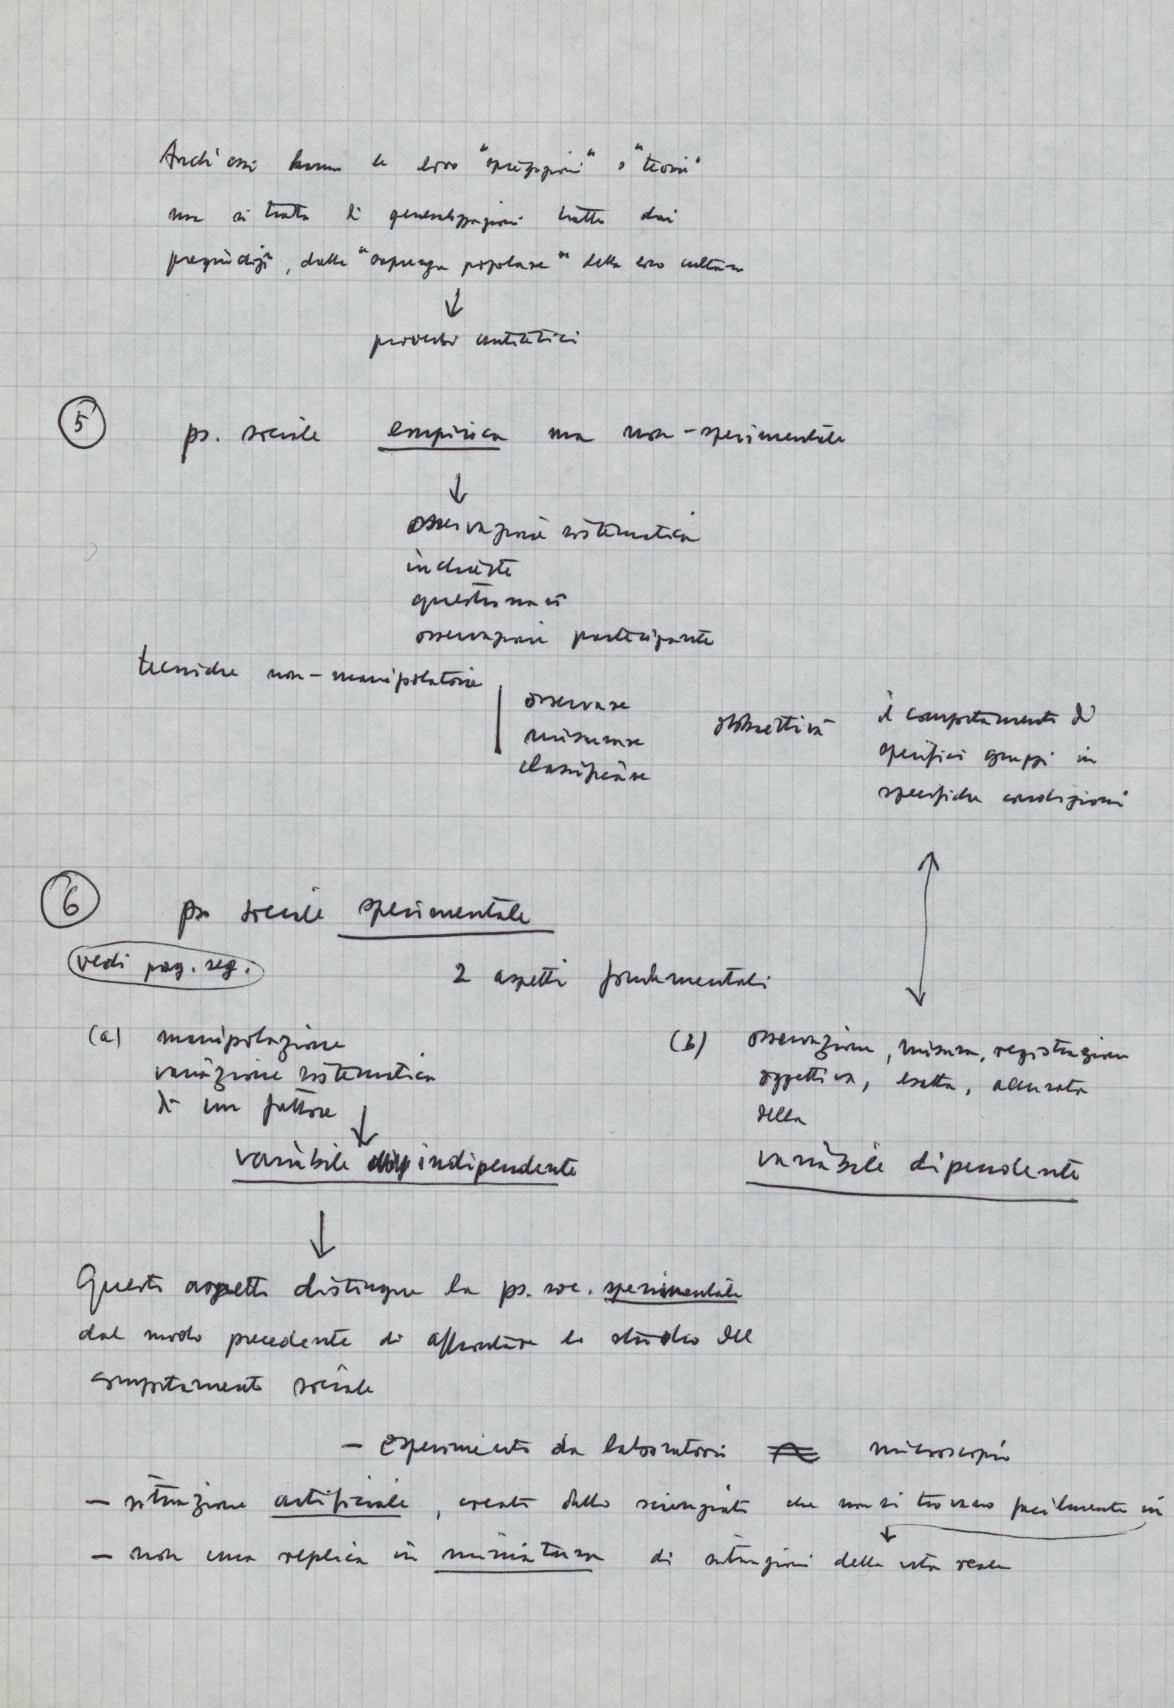 Anch'essi hanno le loro "spiegazioni" o "teorie"
ma si tratta di generalizzazioni tratte dai
pregiudizi, dalla "sapienza popolare" della loro cultura
↓
proverbi antitetici
5 ps. sociale empirica ma non-sperimentale
↓
osservazione sistematica
inchieste
questionari
osservazione partecipante
tecniche non-manipolatorie
osservare
misurare
classificare
obbiettivi
il comportamento di
specifici gruppi in
specifiche condizioni
6 ps. sociale sperimentale
vedi pag. seg.
2 aspetti fondamentali
(a) manipolazione
variazione sistematica
di un fattore ↓
variabile indipendente
(b) osservazione, misura, registrazione
oggettiva, esatta, accurata
della
variabile dipendente
↓
Questi aspetti distingue la ps. soc. sperimentale
dal modo precedente di affrontare lo studio del
comportamento sociale
- esperimento da laboratorio microscopio
- situazione artificiale, creata dallo scienziato che non si trovano facilmente in
- non una replica in miniatura di situazioni della vita reale